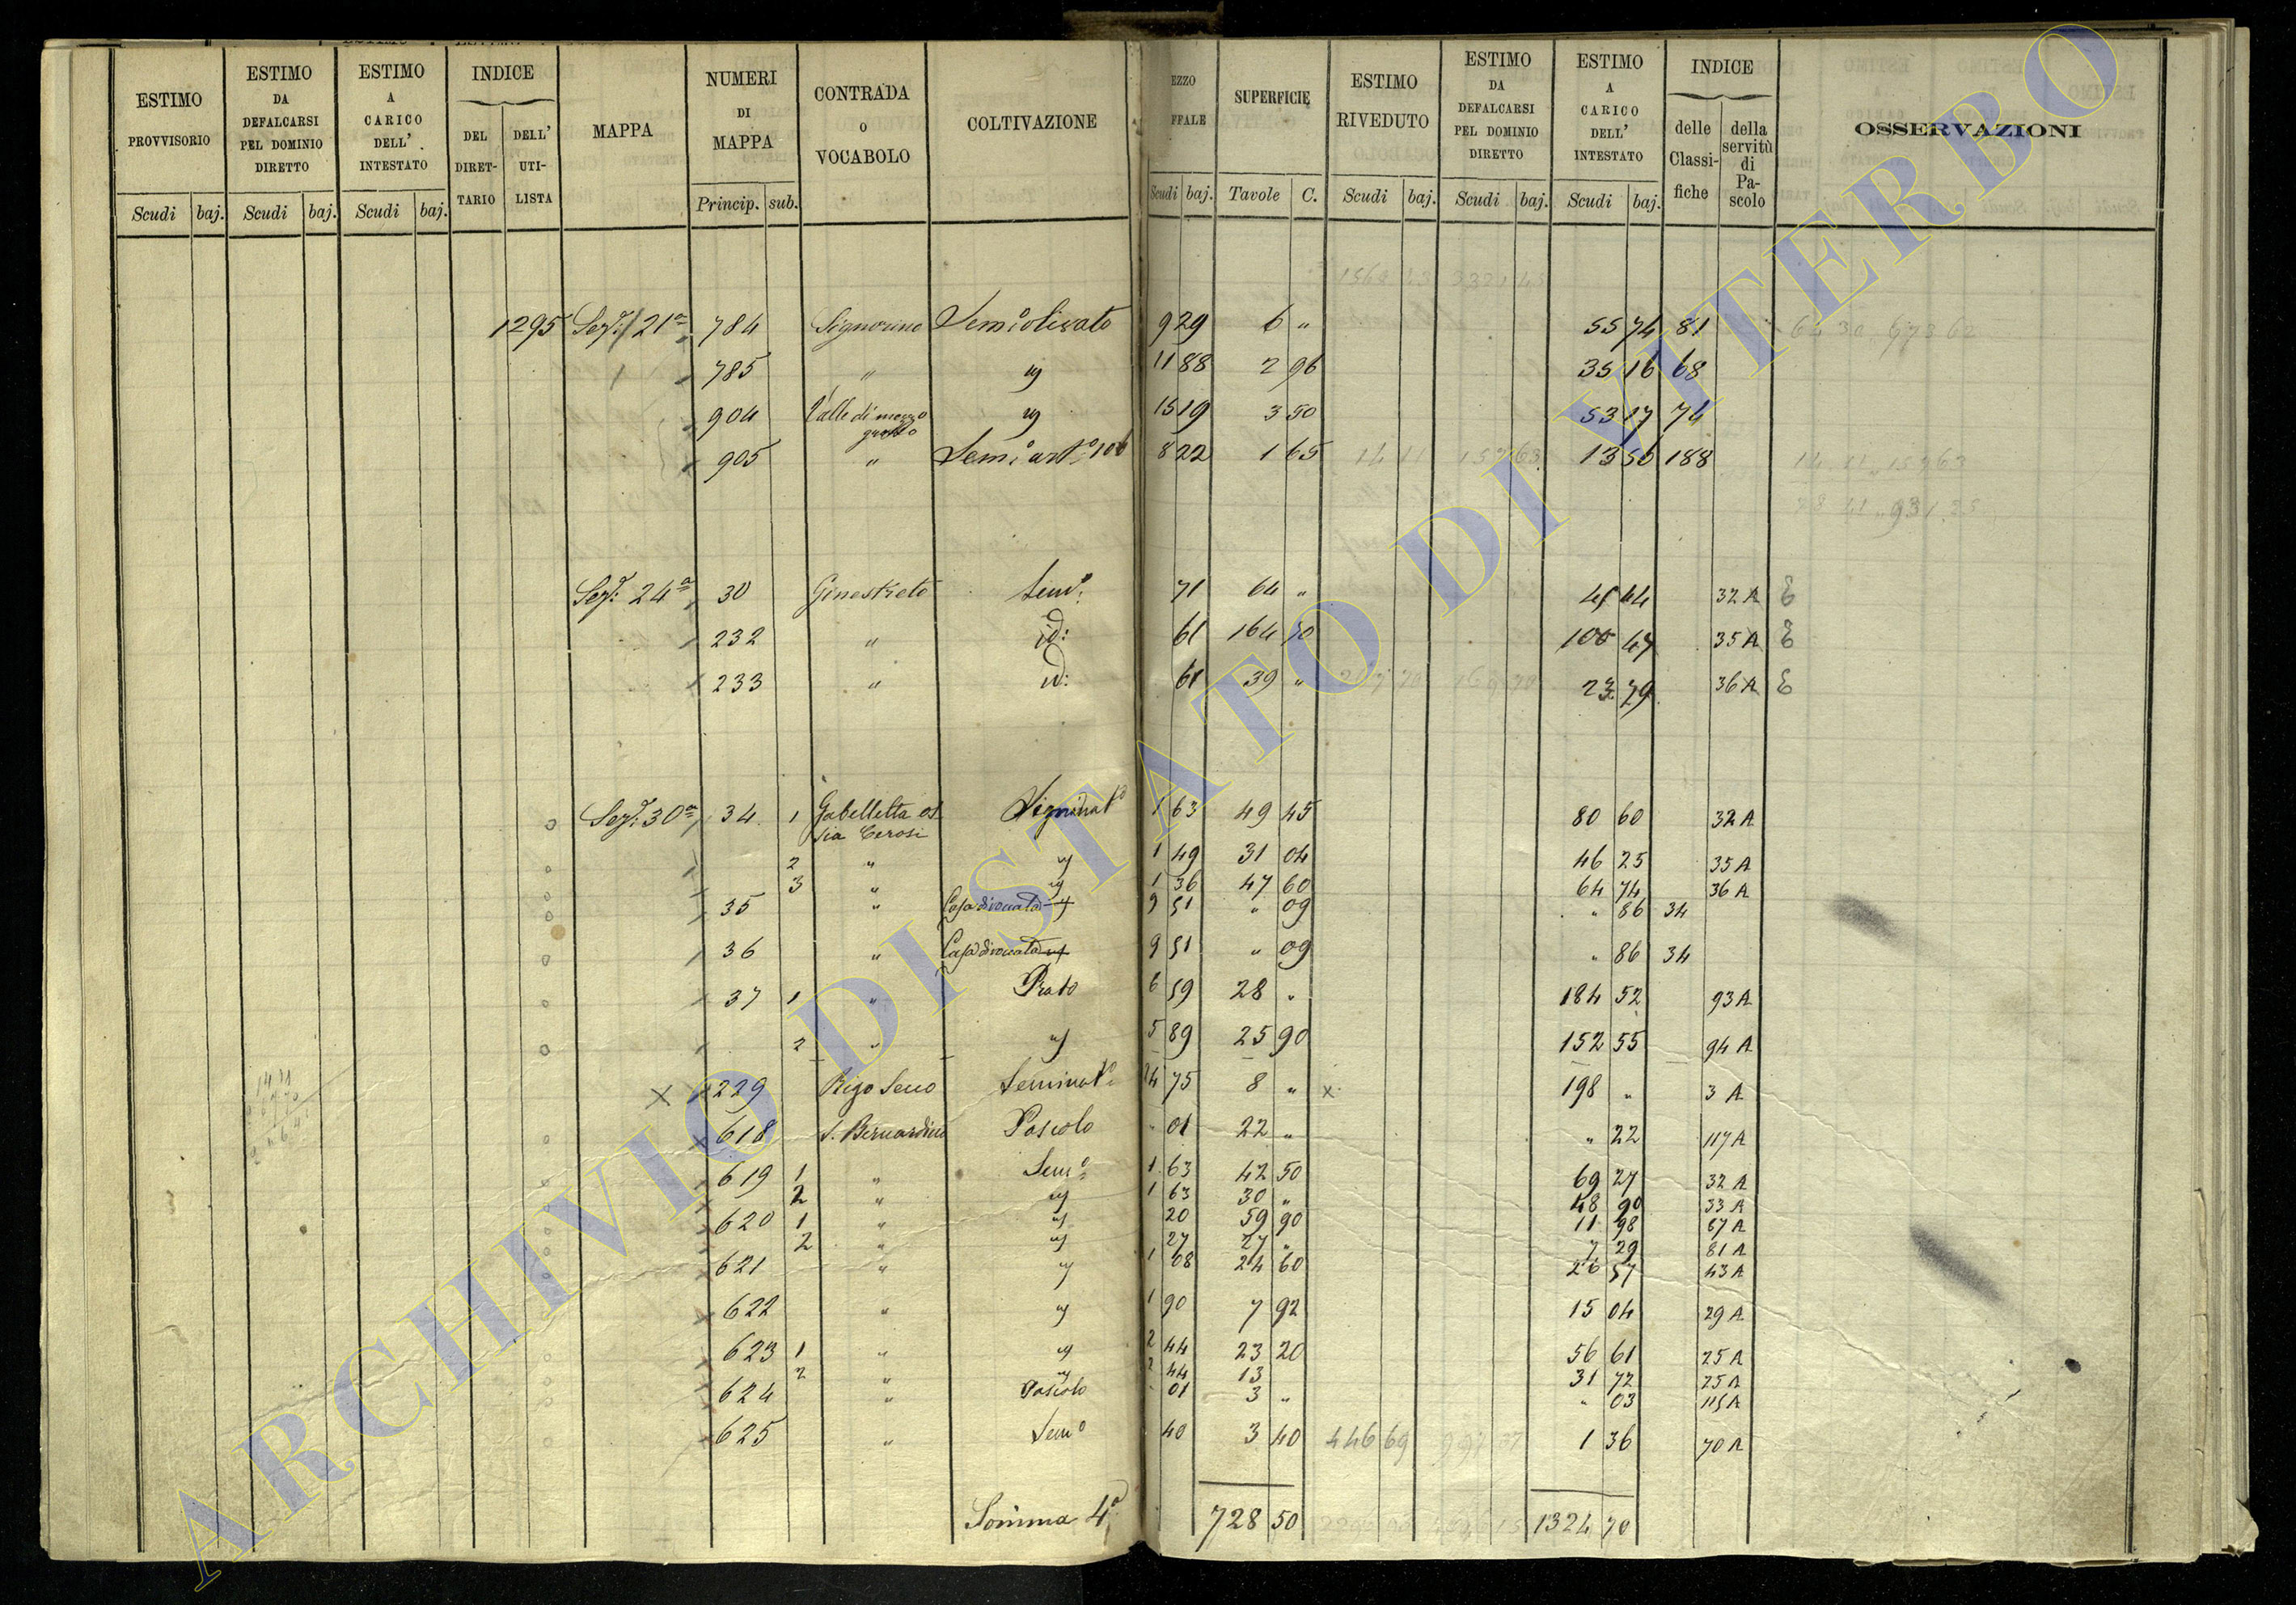 ESTIMO PROVVISORIO | ESTIMO DA DEFALCARSI PEL DOMINIO DIRETTO | ESTIMO A CARICO DELL' INTESTATO | INDICE | MAPPA | NUMERI DI MAPPA | CONTRADA O VOCABOLO | COLTIVAZIONE | EZZO FFALE | SUPERFICIE | ESTIMO RIVEDUTO | ESTIMO DA DEFALCARSI PEL DOMINIO DIRETTO | ESTIMO A CARICO DELL' INTESTATO | INDICE | OSSERVAZIONI
DEL DIRET- TARIO | DELL' UTI- LISTA | delle Classi- fiche | della servitù di Pa- scolo
Scudi | baj. | Scudi | baj. | Scudi | baj. | Princip. | sub. | Scudi | baj. | Tavole | C. | Scudi | baj. | Scudi | baj. | Scudi | baj.
1295 Sez: 21ª 784 Signorino Semi olivato 9 29 6 " 55 74 81
785 " " 11 88 2 96 35 16 68
904 Valle di mezzo 15 19 3 50 53 17 74
905 " 8 22 1 65 14 11 152 63 13 56 188 14 11 152 63
931 25
Sez: 24ª 30 Ginestreto Sem: 71 64 " 44 32 A
232 " id: 61 164 70 100 47 35 A
233 " id: 61 39 " 23 79 36 A
Sez: 30ª 34 1 Gabelletta os sia Cerosi Seminatº 1 63 49 45 80 60 32 A
2 " 1 49 31 04 46 25 35 A
3 " 1 36 47 60 64 74 36 A
35 " Casa diroccata 9 51 " 09 " 86 34
36 " Casa diroccata 9 51 " 09 " 86 34
37 1 " Prato 6 59 28 " 184 52 93 A
2 " 5 89 25 90 152 55 94 A
x 229 Rigo Secco Seminatº 24 75 8 " x 198 " 3 A
618 S. Bernardino Pascolo " 01 22 " " 22 117 A
619 1 " Semº 1 63 42 50 69 27 32 A
2 " 1 63 30 " 48 90 33 A
620 1 " 20 59 90 11 98 67 A
2 " 27 27 " 7 29 81 A
621 " 1 08 24 60 26 57 43 A
622 " 1 90 7 92 15 04 29 A
623 1 " 2 44 23 20 56 61 25 A
2 " 2 44 13 31 72 25 A
624 " Pascolo " 01 3 " " 03 115 A
625 " Semº 40 3 40 446 69 997 37 1 36 70 A
Somma 4ª 728 50 1324 70
ARCHIVIO DI STATO DI VITERBO